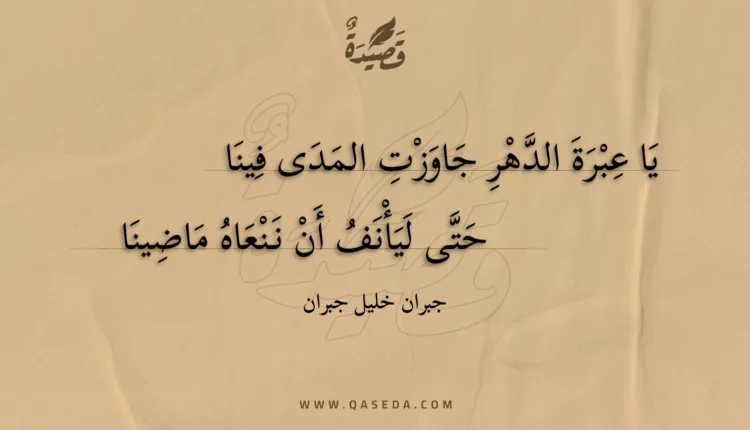 قَصِيدَةٌ
يَا عِبْرَةَ الدَّهْرِ جَاوَزْتِ المَدَى فِينَا
حَتَّى لَيَأْنَفُ أَنْ نَنْعَاهُ مَاضِينَا
جبران خليل جبران
WWW.QASEDA.COM